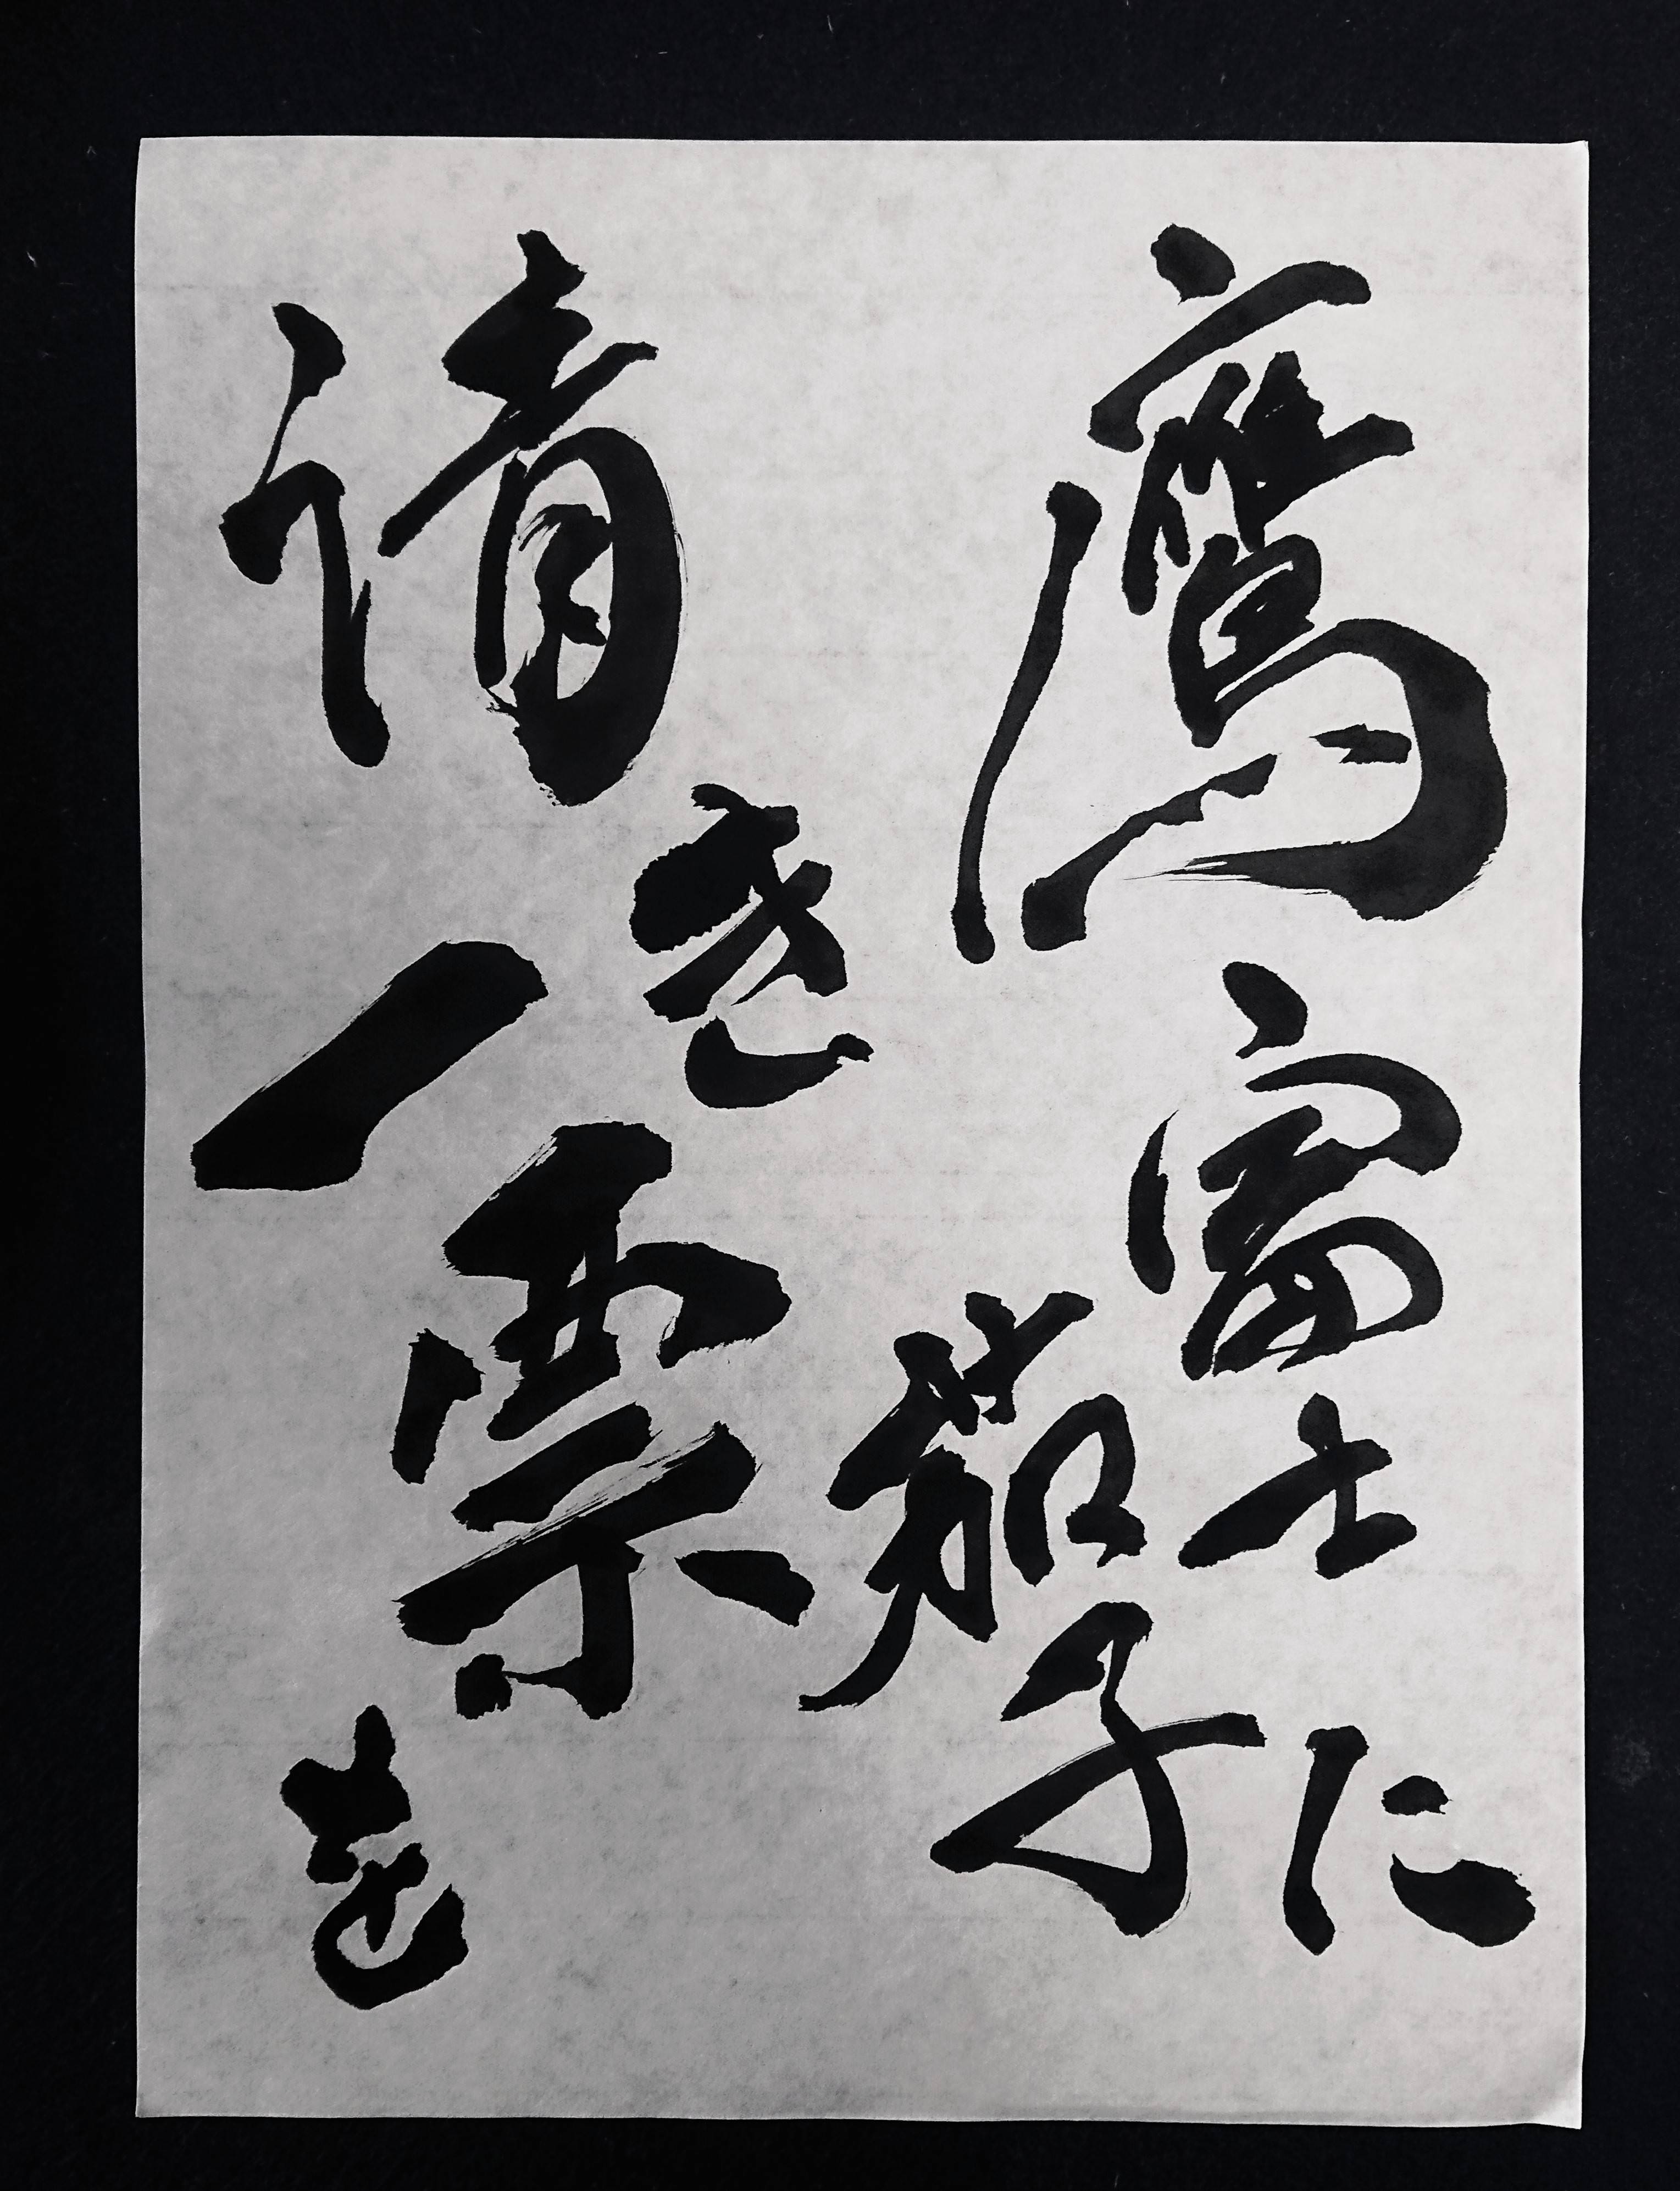 鷹富士茄子に
清き一票を